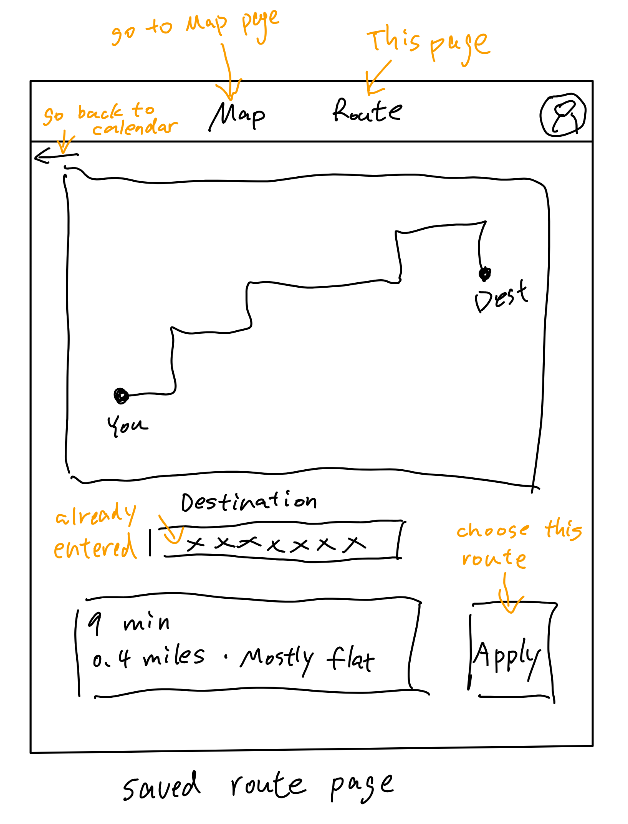 go to Map page
This page
go back to
calendar
Map
Route
Dest
You
Destination
already
entered
xxxxxxx
choose this
route
9 min
0.4 miles · Mostly flat
Apply
saved route page